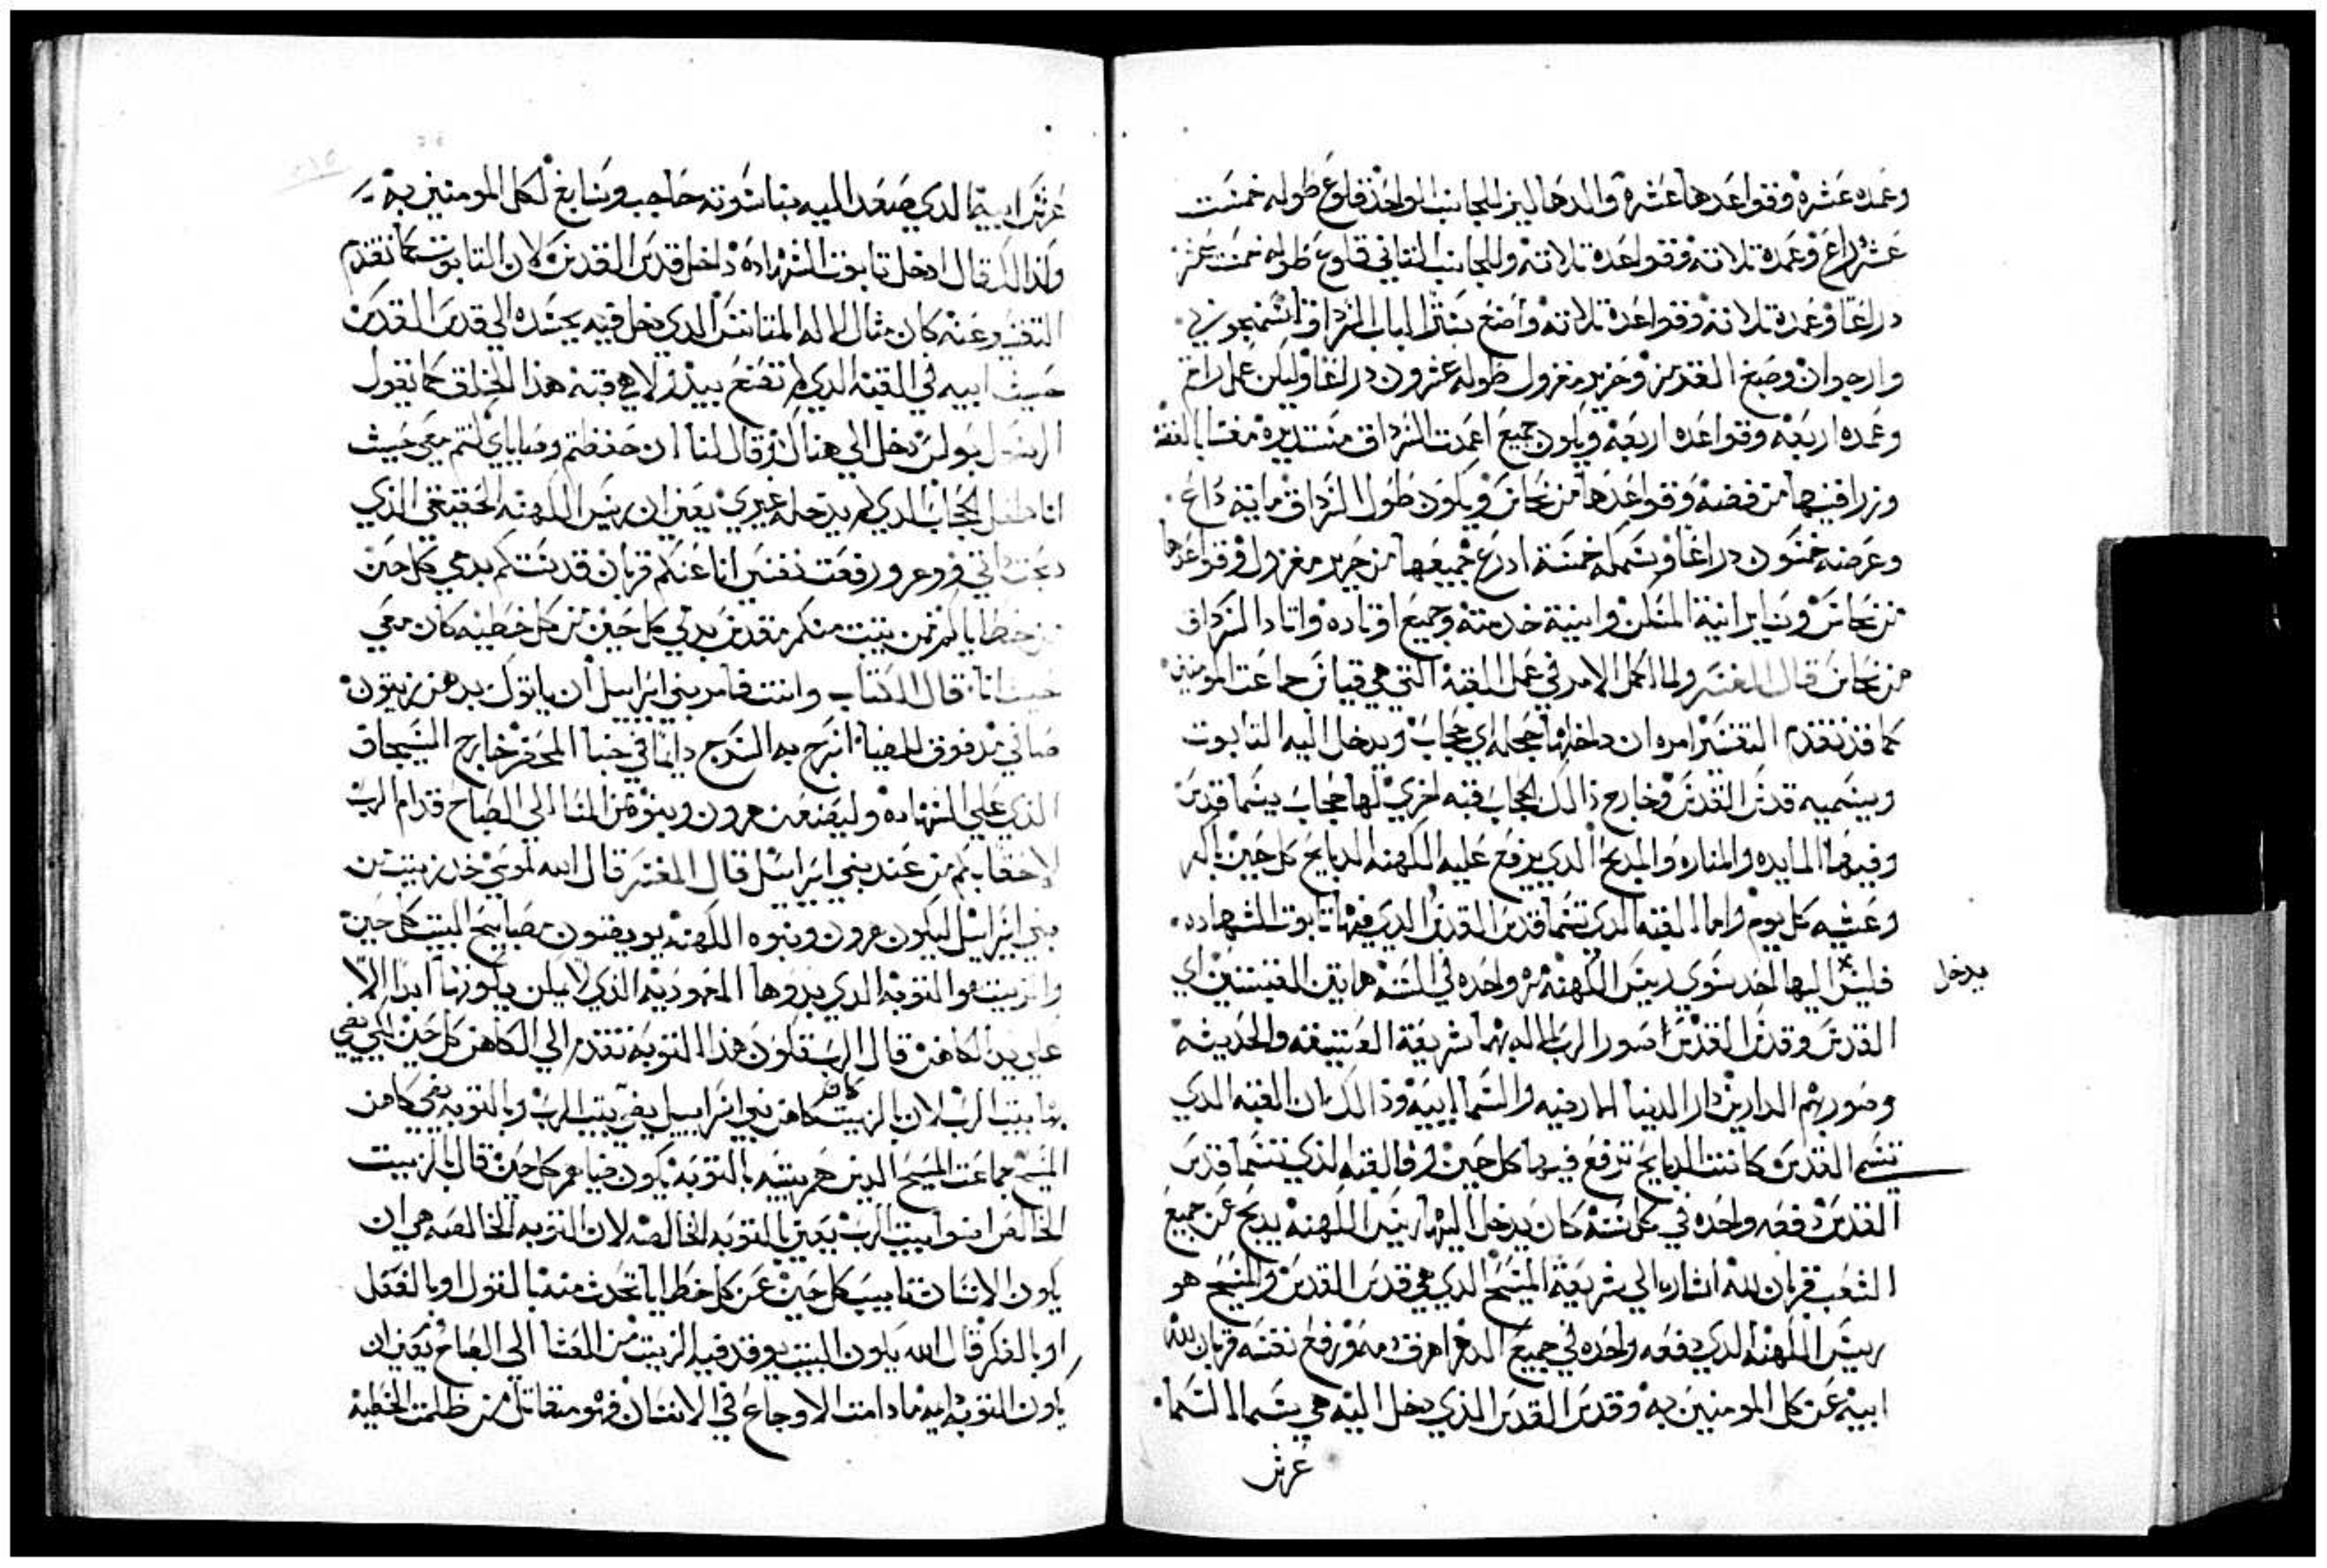 وعمده عشرة وقواعدها عشرة والدهاليز للجانب الواحد قلوع طوله خمست
عشر دراع وعمدة تلاتته وقواعدة تلاتته وللجانب التاني قلوع طوله خمست عشر
دراعا وعمدة تلاتته وقواعدة تلاتته واصنع ستر الباب السرداق اسمنجوني
وارجوان وصبغ القدمز وحرير مغزول طوله عشرون دراعا وليكن عمل راقم
وعمده اربعه وقواعده اربعه ويكون جميع اعمدت السرداق مستديرة مغشا بالفضه
وزرافينها من فضه وقواعدها من نحاس ويكون طول السرداق مايته دراع
وعرضه خمسون دراعا وسمكه خمسة ادرع جميعها من حرير مغزول وقواعدها
من نحاس وساير انية المسكن وابنية خدمته وجميع اوتاده واتاد السرداق
من نحاس قال المفسر ولما اكمل الامر في عمل القبه التي هي قياس جماعت المومنين
كما قد تقدم التفسير امره ان داخلها حجله اي حجاب ويدخل اليه التابوت
ويسميه قدس القدس وخارج ذالك الحجاب قبه اخري لها حجاب يسما قدس
وفيها المايده والمناره والمدبح الدي يرفع عليه الكهنه الدبايح كل حين باكر
وعشيه كل يوم واما القبه الدي تسما قدس القدس الدي فيها تابوت الشهاده
فليس اليها احد سوي ريس الكهنه مره واحده في السنه هاتين القبتين اي
يدخل
القدس وقدس القدس اصور الرب الاله بهما شريعة العتيقه والحديثه
وصور بهم الدارين دار الدنيا المارضيه والسماييه وذالك ان القبه الدي
تسمي القدس كانت الدبايح ترفع فيها كل حين وفالقبه الذي تتسما قدس
القدس دفعه واحده في كل سنه كان يدخل اليها ريس الكهنه يدبح عن جميع
الشعب قربان لله اشاره الي شريعة المسيح الدي هي قدس القدس والمسيح هو
ريس الكهنه الدي دفعه واحده في جميع الدهر اهرق دمه ورفع نفسه قربان لله
ابيه عن كل المومنين به وقدس القدس الذي دخل اليه هي سما السما
عرش
عرش ابيه الدي صعد اليه بناسوته حاجب وسابغ لكل المومنين به
ولذالك قال ادخل تابوت الشهاده داخل قدس القدس لان التابوت كما تقدم
التفسير عنه كان مثال الاله المتانس الدي دخل فيه بجسده الي قدس القدس
حيث ابيه في القبه الدي لم تصنع بيد ولا هي قبه هذا الخلق كما تقول
الرسول بولس دخل الي هناك وقال لنا ان حفظتم وصاياي انتم معي حيث
انا داخل الحجاب الدي لم يدخله غيري يعني ان ريس الكهنه الحقيقي الذي
دبحت داتي ورفعت نفسي انا عنكم قربان قدستكم بدمي كل حين
من خطاياكم فمن يتبت منكم مقدس بدمي كل حين من كل خطيه كان معي
حيث انا قال الكتاب وانت فامر بني اسراييل ان ياتوك بدهن زيتون
صافي مدفوق للضيا اسرج به السرج دايما في خبا المحضر خارج السيجاق
الذي علي الشهاده وليصنعه هرون وبنوه من المسا الي الصباح قدام الرب
لاحقابكم من عند بني اسراييل قال المفسر قال الله لموسي خد زيت من
بني اسراييل ليكون هرون وبنوه الكهنه يوقدون مصابيح البيت كل حين
والزيت هو التوبه الدي بدوها المعموديه الذي لا يمكن يكوزها ابدا الا
علي يد الكاهن قال الرب تكون هذه التوبه تتقدم الي الكاهن كل حين لكي يضي
بها بيت الرب لان بالزيت كما قد كاهن بني اسراييل يضي بيت الرب وبالتوبه يضي كاهن
المسيح جماعت المسيح الدين هم بيته بالتوبه يكون ضياهم كل حين قال بالزيت
الخالص اضوا بيت الرب يعني بالتوبه الخالصه لان التوبه الخالصه هي ان
يكون الانسان تايب كل حين عن كل خطايا تحدث منه بالقول او بالفعل
او بالفكر قال الله يكون البيت يوقد فيه الزيت من العشا الي الصباح يعني ان
يكون التوبه دايمه ما دامت الاوجاع في الانسان فهو متقاتل من ظلمت الخطيه